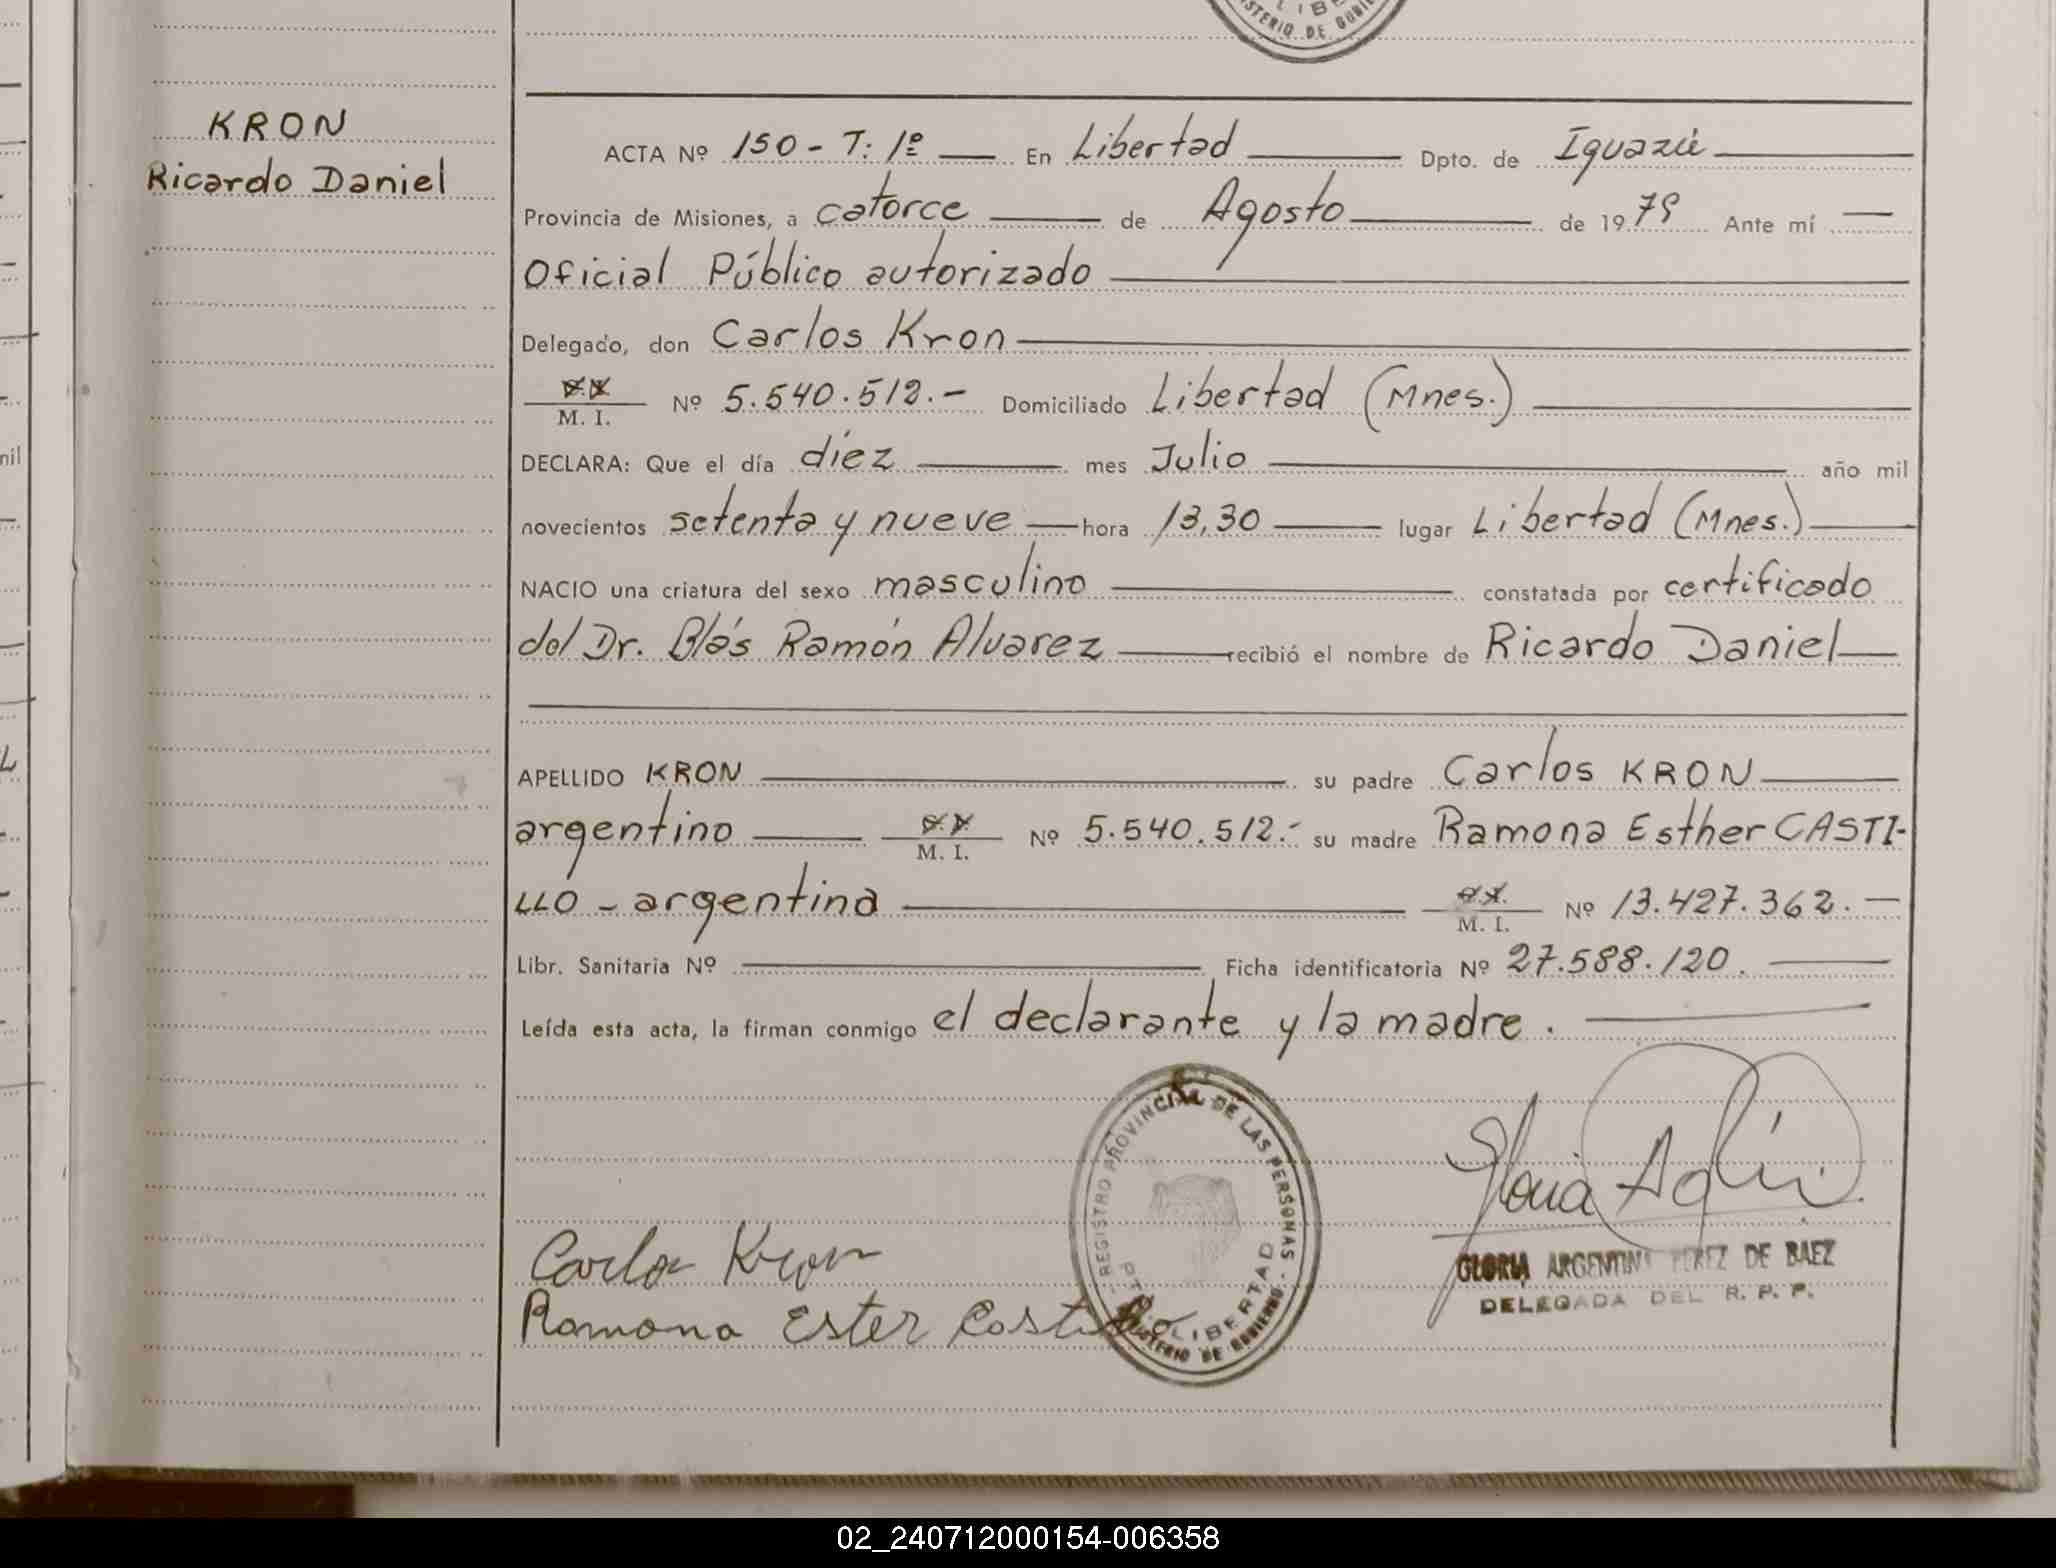 LIBE
MINISTERIO DE GOBIE
KRON
Ricardo Daniel
ACTA Nº 150 - T: 1º — En Libertad — Dpto. de Iguazú —
Provincia de Misiones, a catorce — de Agosto — de 1979 Ante mí —
Oficial Público autorizado —
Delegado, don Carlos Kron —
M. I. Nº 5.540.512.- Domiciliado Libertad (Mnes.) —
DECLARA: Que el día diez — mes Julio — año mil
novecientos setenta y nueve — hora 13,30 — lugar Libertad (Mnes.) —
NACIO una criatura del sexo masculino — constatada por certificado
del Dr. Blás Ramón Alvarez — recibió el nombre de Ricardo Daniel —
APELLIDO KRON — su padre Carlos KRON —
argentino — M. I. Nº 5.540.512.- su madre Ramona Esther CASTI-
LLO - argentina — M. I. Nº 13.427.362. —
Libr. Sanitaria Nº — Ficha identificatoria Nº 27.588.120. —
Leída esta acta, la firman conmigo el declarante y la madre. —
REGISTRO PROVINCIAL DE LAS PERSONAS
LIBERTAD
MINISTERIO DE GOBIERNO
Carlos Kron
Ramona Ester Castillo
GLORIA ARGENTINA PEREZ DE BAEZ
DELEGADA DEL R. P. P.
nil
02_240712000154-006358